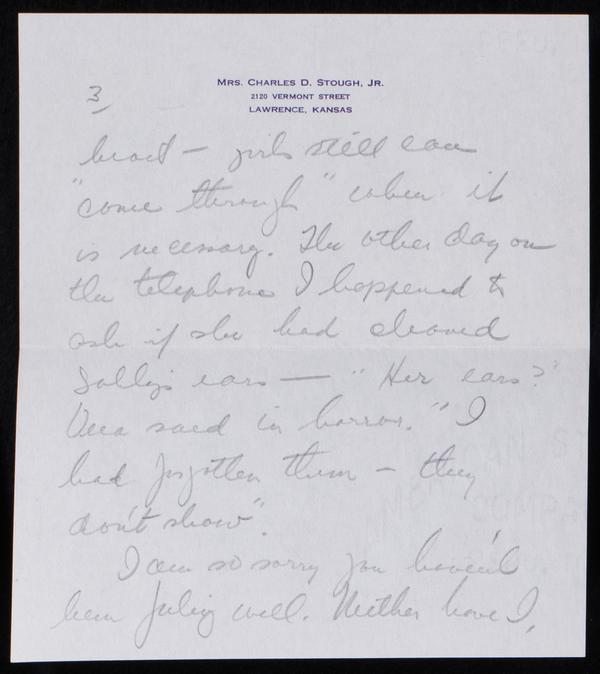 MRS. CHARLES D. STOUGH, JR.
2120 VERMONT STREET
LAWRENCE, KANSAS
3
— girls still can
"come through" when it
is necessary. The other day on
the telephone I happened to
ask if she had cleaned
Sally's ears — "Her ears?"
Vera said in horror. "I
had forgotten them — they
don't show".
I am so sorry you haven't
been feeling well. Neither have I,